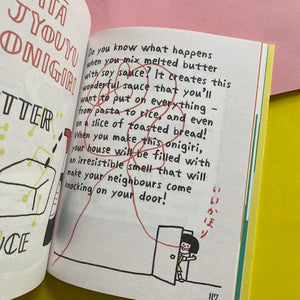 TTA
JYOUYU
ONIGIRI
TTER
UCE
Do you know what happens
when you mix melted butter
with soy sauce? It creates this
wonderful sauce that you'll
want to put on everything –
from pasta to rice, and even
on a slice of toasted bread!
When you make this onigiri,
your house will be filled with
an irresistible smell that will
make your neighbours come
knocking on your door!
いいかほり
117